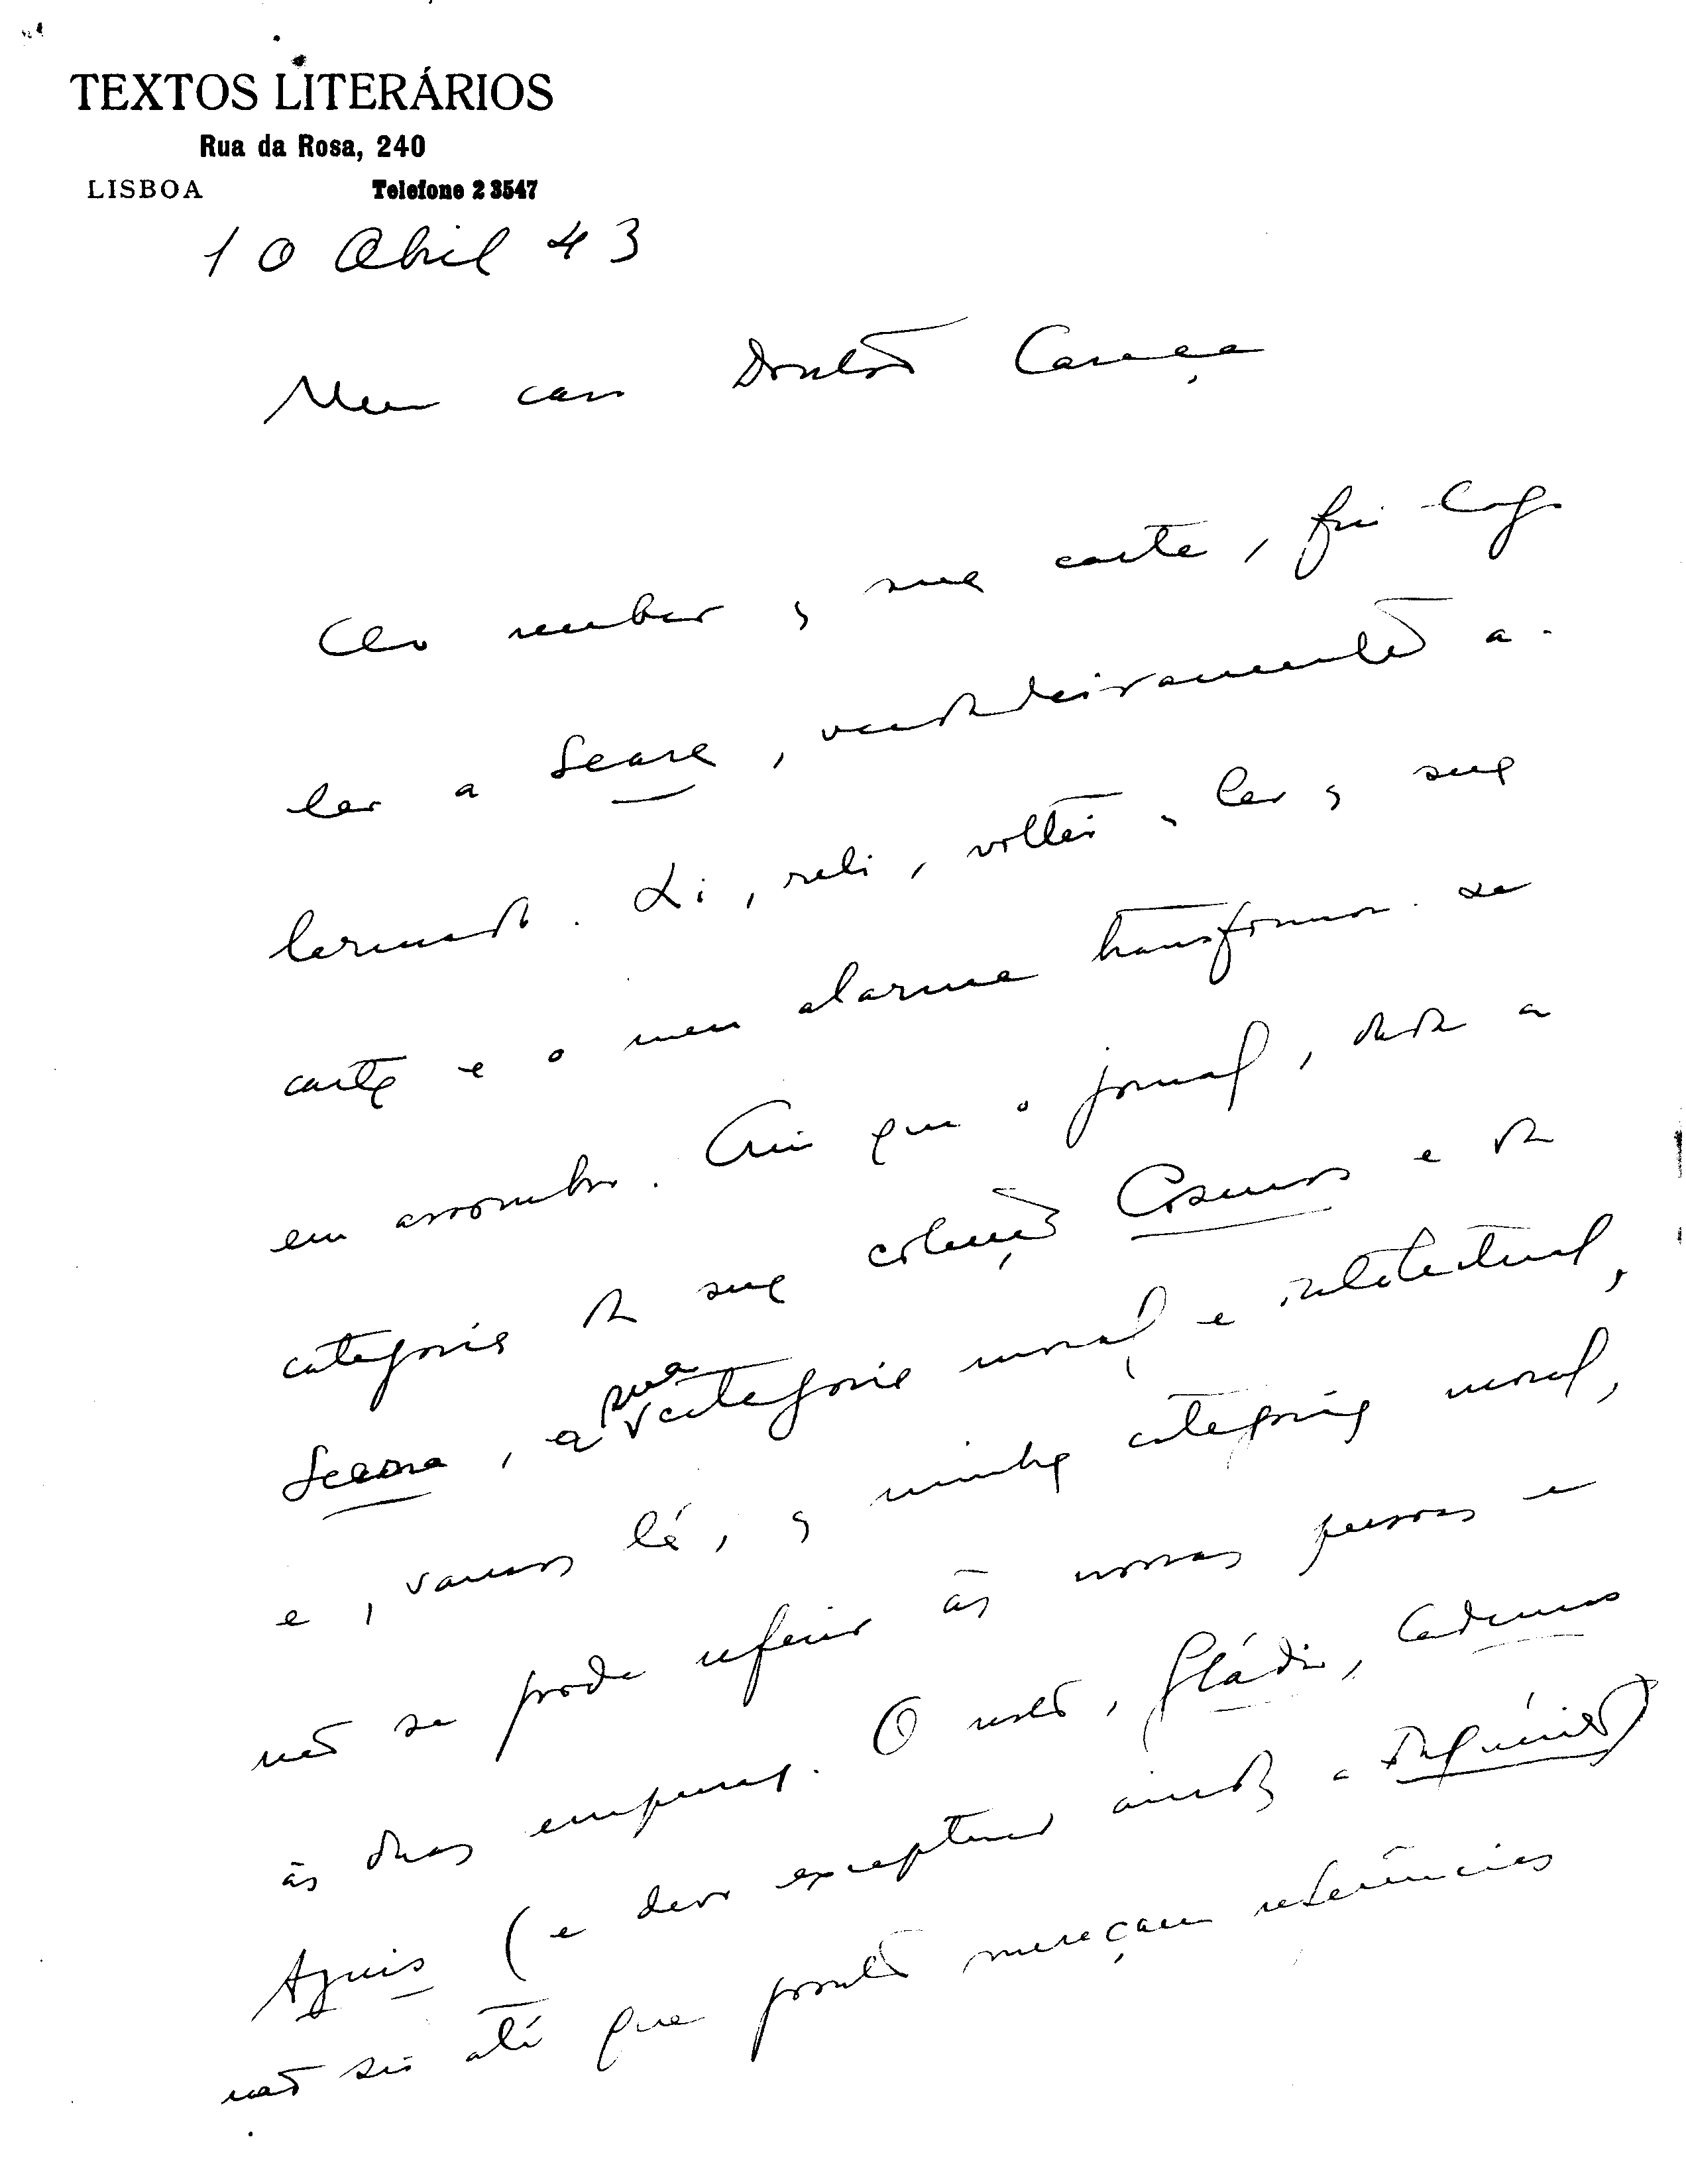 TEXTOS LITERÁRIOS
Rua da Rosa, 240
LISBOA Telefone 2 3547
10 Abril 43
Meu caro Doutor Caraça
Ao receber a sua carta, fui logo
ler a Seara, verdadeiramente a-
larmado. Li, reli, voltei a ler a sua
carta e o meu alarme transformou-se
em assombro. Creio que o jornal, dada a
categoria da sua colecção Cosmos e da
Seara, a sua categoria moral e intelectual,
e, vamos lá, a minha categoria moral,
não se pode referir às nossas pessoas e
às duas empresas. O resto, Gládio, Cadernos
(e devo exceptuar ainda a
não sei até que ponto mereçam referências